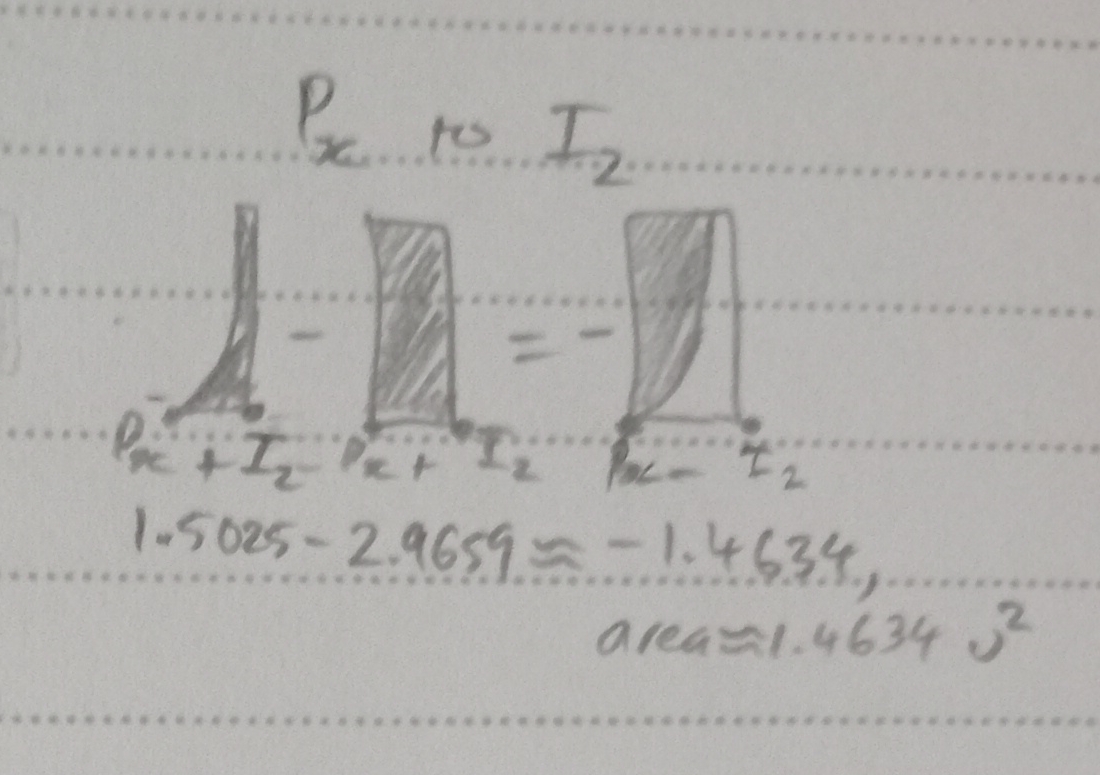 Px to I2
- = -
Px + I2 Px + I2 Px - I2
1.5025 - 2.9659 ≈ -1.4634,
area ≈ 1.4634 u²